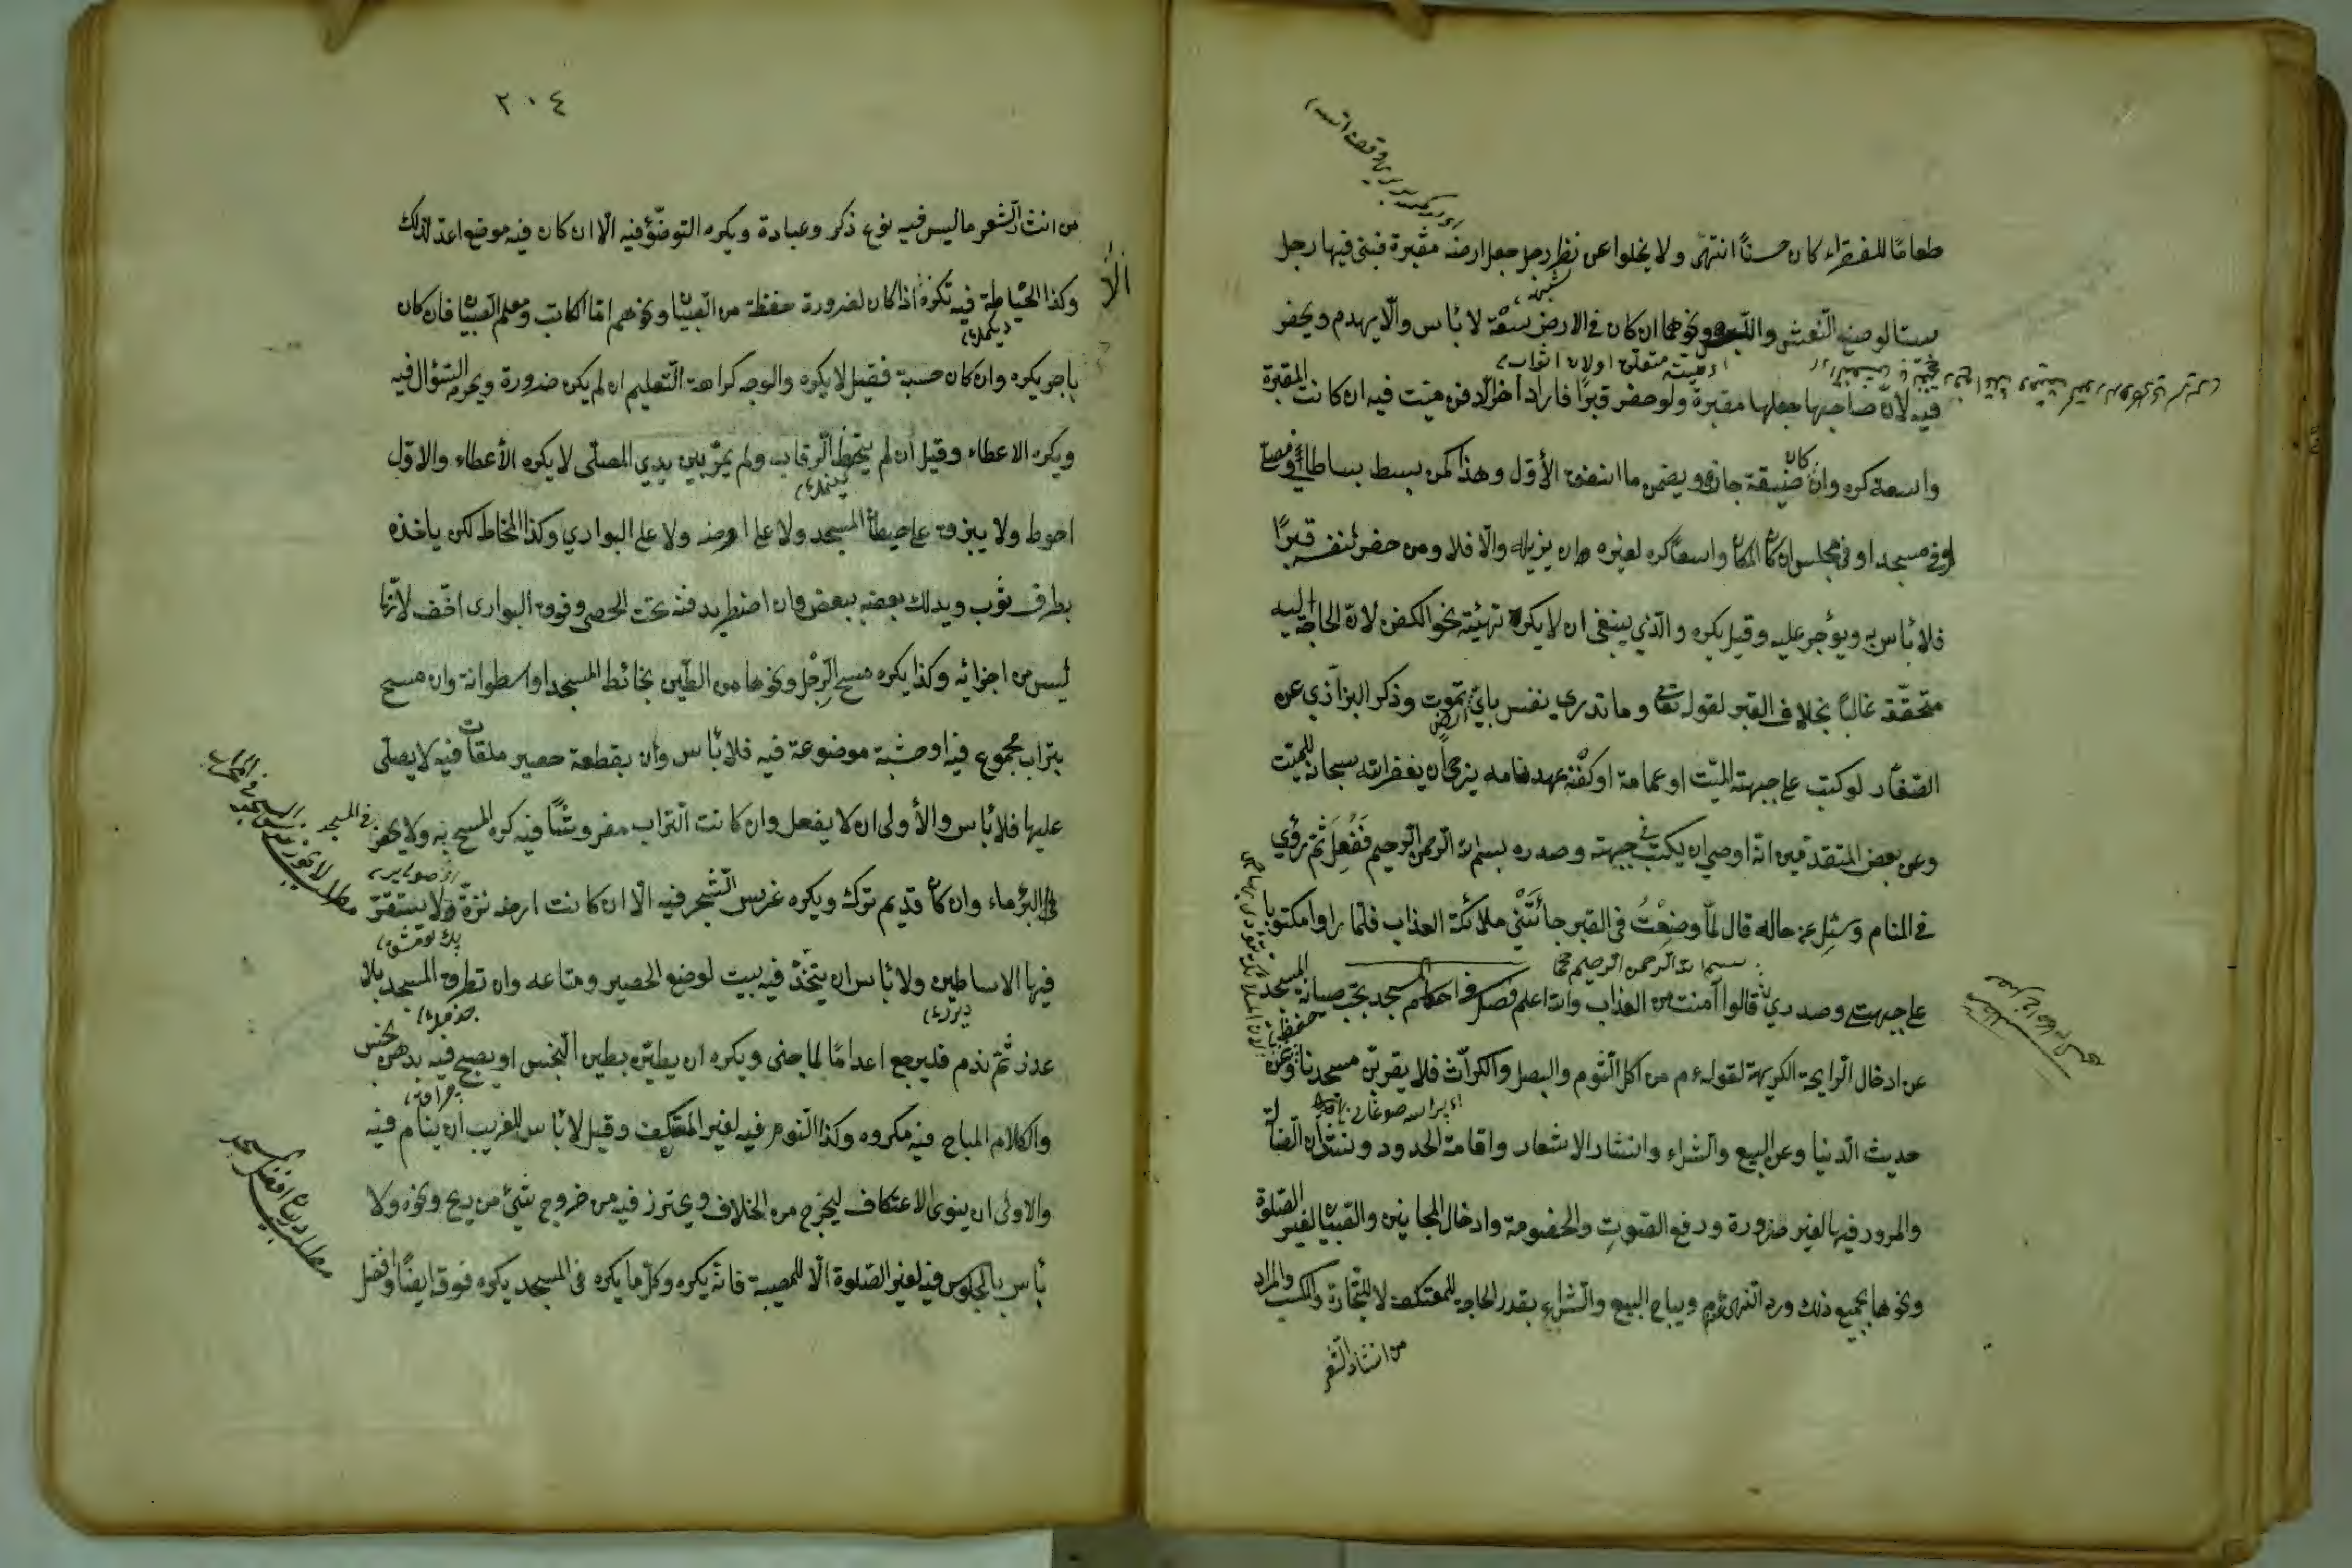 طعامًا للفقراء كان حسنًا انتهى ولا يخلوا عن نظر رجل جعل ارضه مقبرة فبنى فيها رجل
بيتا لوضع النعش واللبن ونحوهما ان كان في الارض سعة لا بأس والّا يهدم ويحفر
فيه لانّ صاحبها جعلها مقبرة ولو حفر قبرًا فاراد آخر دفن ميّت فيه ان كانت المقبرة
واسعة كره وان كان ضيقة جاز ويضمن ما انفق الأوّل وهذا كمن بسط بساطا او مصلّى
او في مسجد او في مجلس ان كان المكان واسعًا كره لغيره ان يزيله والّا فلا ومن حفر لنفسه قبرًا
فلا بأس به ويؤجر عليه وقيل يكره والّذي ينبغي ان لا يكره تهيئة نحو الكفن لانّ الحاجة اليه
متحقّقة غالبًا بخلاف القبر لقوله تعالى وما تدري نفس بايّ ارض تموت وذكر البزّازي عن
الصفّار لو كتب على جبهة الميّت او عمامة او كفنه عهد نامه يرجى ان يغفر الله سبحانه للميّت
وعن بعض المتقدّمين انّه اوصى ان يكتب في جبهته وصدره بسم الله الرحمن الرحيم فَفُعِلَ ثمّ رؤي
في المنام وسُئِل عن حاله قال لمّا وضِعْتُ في القبر جائَتْنِي ملائكة العذاب فلمّا راوا مكتوبا
على جبهتي وصدري بسم الله الرحمن الرحيم قالوا آمنت من العذاب والله اعلم فصل في احكام المسجد يجب صيانة المسجد
عن ادخال الرايحة الكريهة لقوله عم من اكل الثوم والبصل والكرّاث فلا يقربنّ مسجدنا وعن
حديث الدنيا وعن البيع والشراء وانشاد الاشعار واقامة الحدود ونشدان الضالّة
والمرور فيها لغير ضرورة ورفع الصوت والخصومة وادخال المجانين والصبيان لغير الصلوة
ونحوها بجميع ذلك ورد النهي عم ويباح البيع والشراء بقدر الحاجة للمعتكف لا للتجارة والكسب والمراد
من انشاد الشعر
٢٠٤
من انشاد الشعر ما ليس فيه نوع ذكر وعبادة ويكره التوضّؤ فيه الّا ان كان فيه موضع اعد لذلك
وكذا الخياطة فيه تكره الّا اذا كان لضرورة حفظه من الصبيان ونحوهم امّا الكاتب ومعلم الصبيان فان كان
باجر يكره وان كان حسبة فقيل لا يكره والوجه كراهة التعليم ان لم يكن ضرورة ويحرم السؤال فيه
ويكره الاعطاء وقيل ان لم يتخطّ الرقاب ولم يمرّ بين يدي المصلّي لا يكره الأعطاء والاوّل
احوط ولا يبزق على حيطان المسجد ولا على ارضه ولا على البواري وكذا المخاط لكن ياخذه
بطرف ثوب ويدلك بعضه ببعض وان اضطر يدفنه تحت الحصى وفوق البوارى اخّف لانّها
ليس من اجزائه وكذا يكره مسح الرِّجْل ونحوها من الطين بحائط المسجد او اسطوانة وان مسح
بتراب مجموع فيه او خشبة موضوعة فيه فلا بأس وان بقطعة حصير ملقاة فيه لا يصلّى
عليها فلا بأس والأولى ان لا يفعل وان كانت التراب مفروشًا فيه كره المسح به ولا يحفر في المسجد
البئر ماء وان كان قديم ترك ويكره غرس الشجر فيه الّا ان كانت ارضه نزّة ولا يستقرّ
فيها الاساطين ولا بأس ان يتّخذ فيه بيت لوضع الحصير ومتاعه وان تطرق المسجد بلا
عذر ثمّ ندم فليرجع اعدامًا لما جنى ويكره ان يطيّن بطين النجس او يصبح فيه بدهن نجس
والكلام المباح فيه مكروه وكذا النوم فيه لغير المعتكف وقيل لا بأس للغريب ان ينام فيه
والاولى ان ينوى الاعتكاف ليخرج من الخلاف ويحترز فيه من خروج شيئ من ريح ونحوه ولا
بأس بالجلوس فيه لغير الصلوة الّا للمصيبة فانّه يكره وكلّ ما يكره في المسجد يكره فوقه ايضًا وافضل